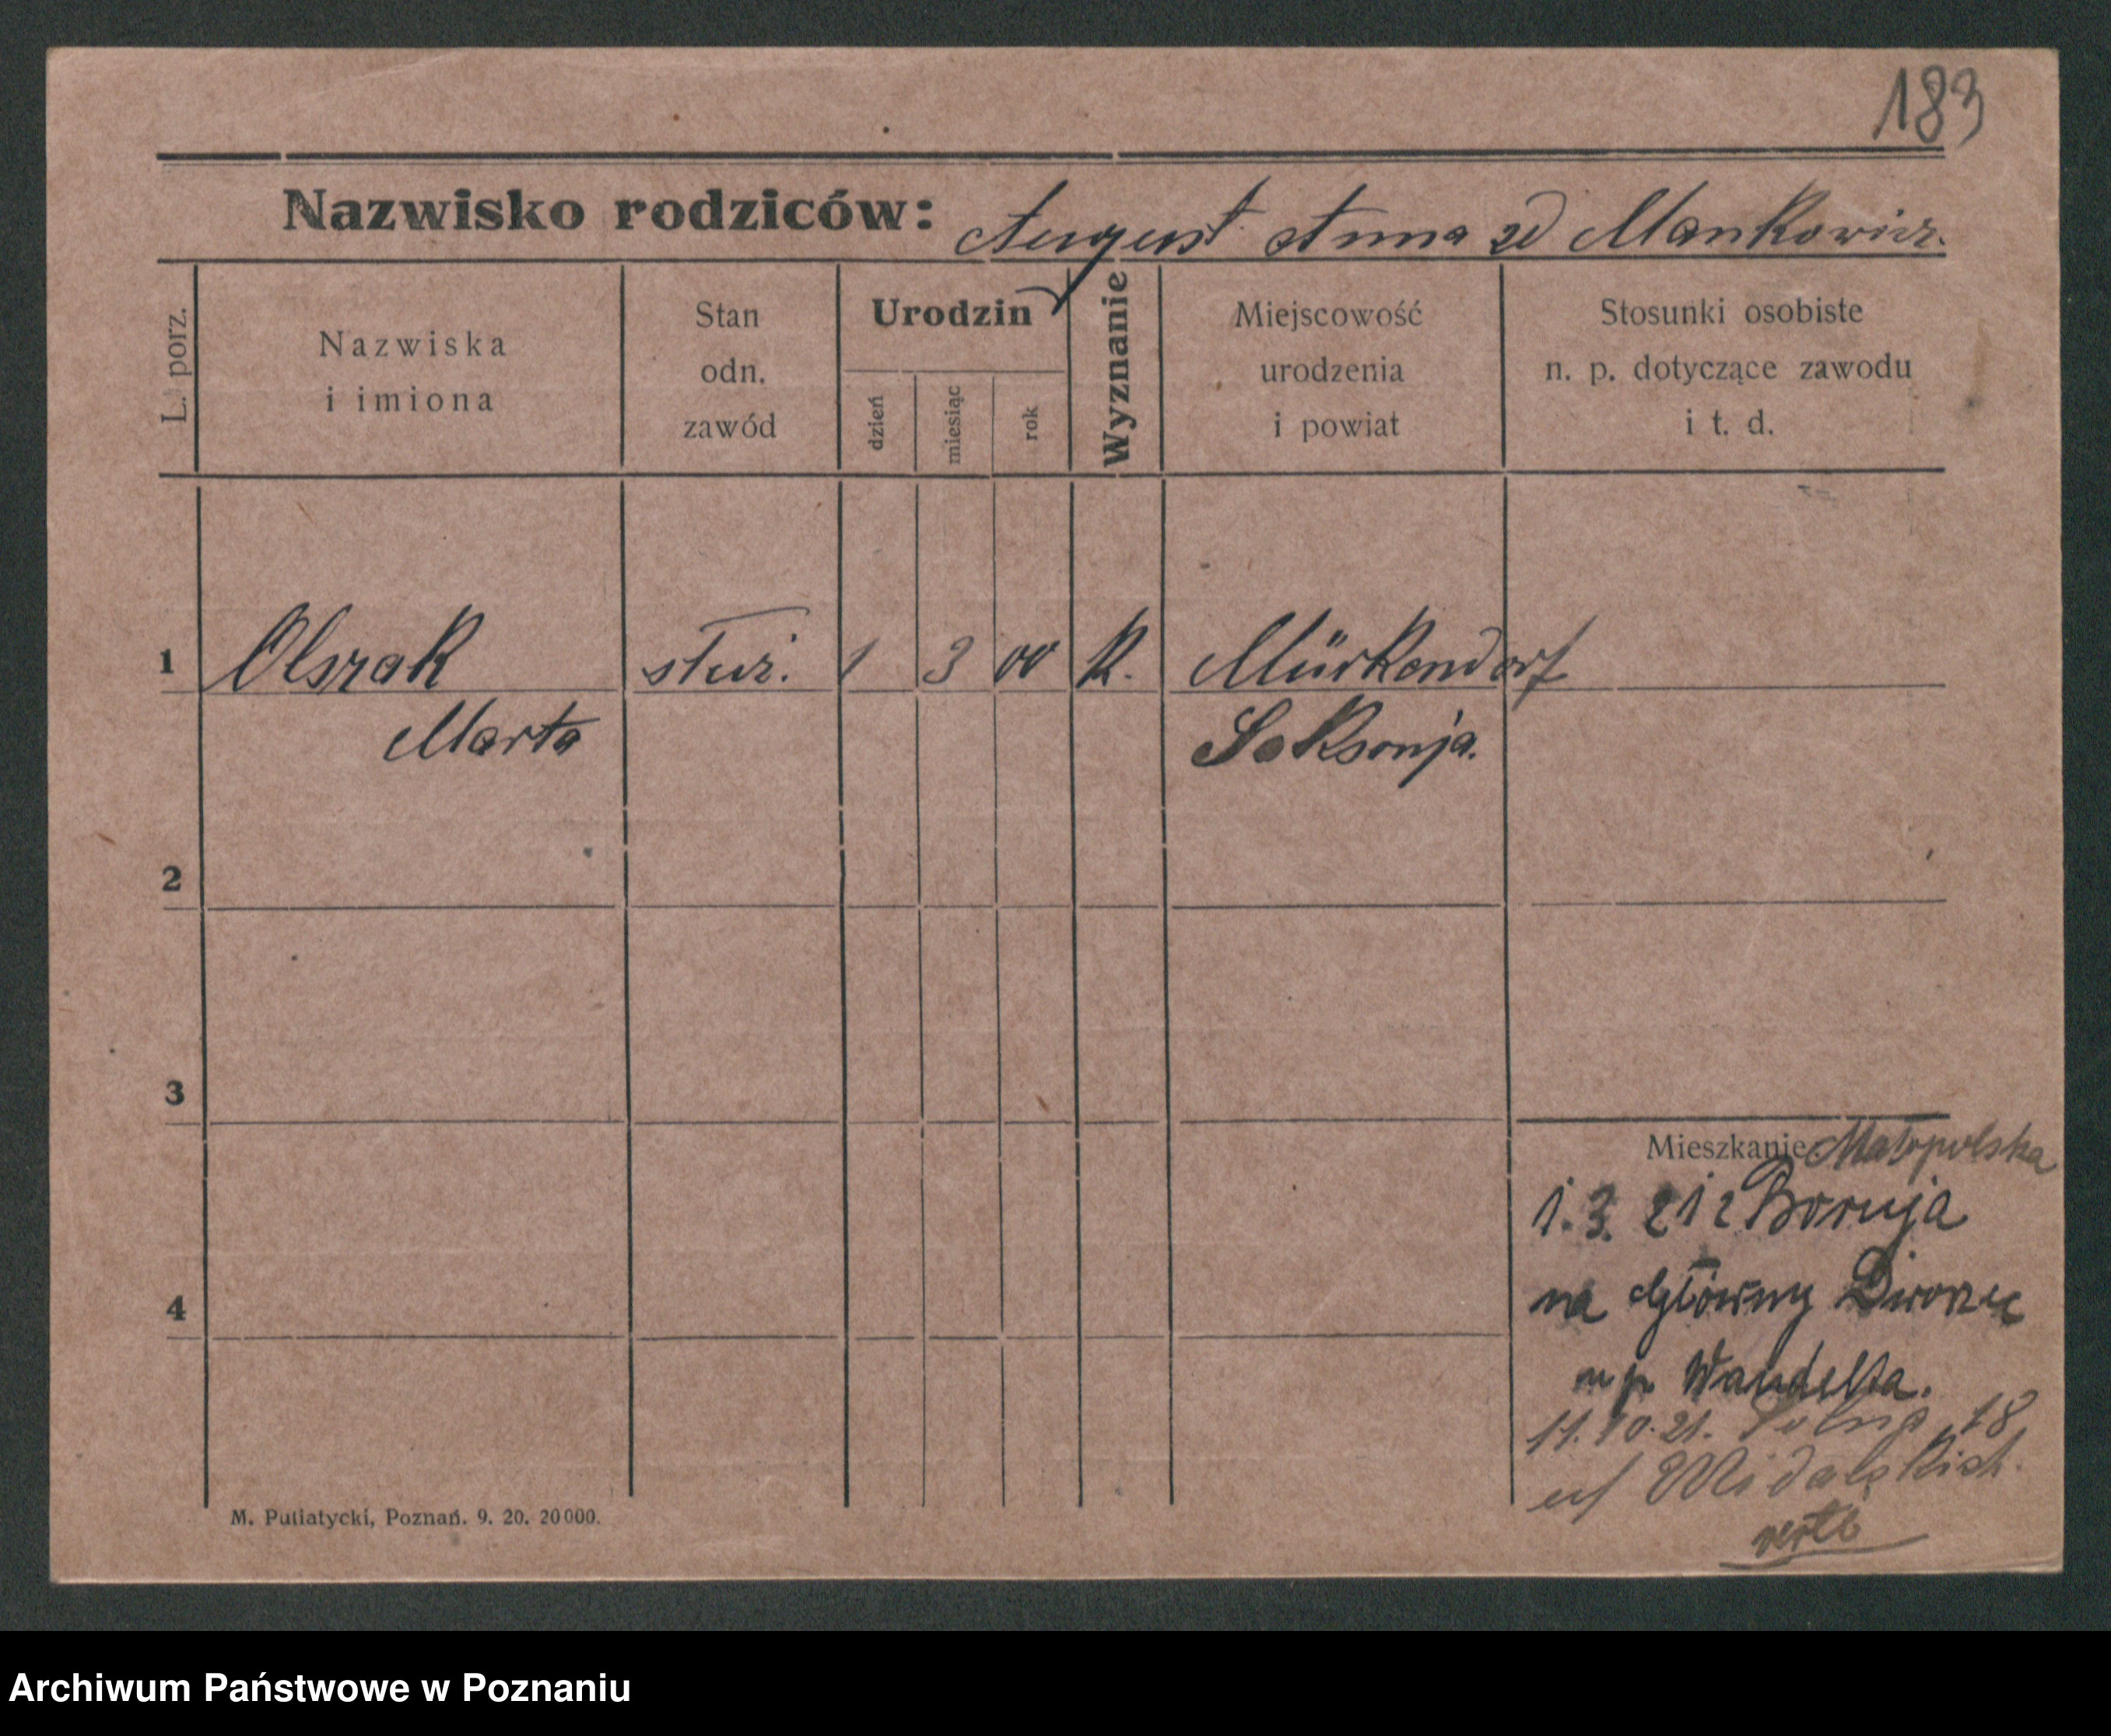 183
Nazwisko rodziców: August Anna zd Mankowicz.
L. porz.
Nazwiska
i imiona
Stan
odn.
zawód
Urodzin
dzień
miesiąc
rok
Wyznanie
Miejscowość
urodzenia
i powiat
Stosunki osobiste
n. p. dotyczące zawodu
i t. d.
1 Olszak służ. 1 3 00 K. Mürkendorf
Marta Saksonja.
2
3
4
Mieszkanie Małopolska
1.3.21 z Boruja
na Główny Dworzec
u p. Wandelta.
11.10.21. 18
u/
verte
M. Putiatycki, Poznań. 9. 20. 20000.
Archiwum Państwowe w Poznaniu